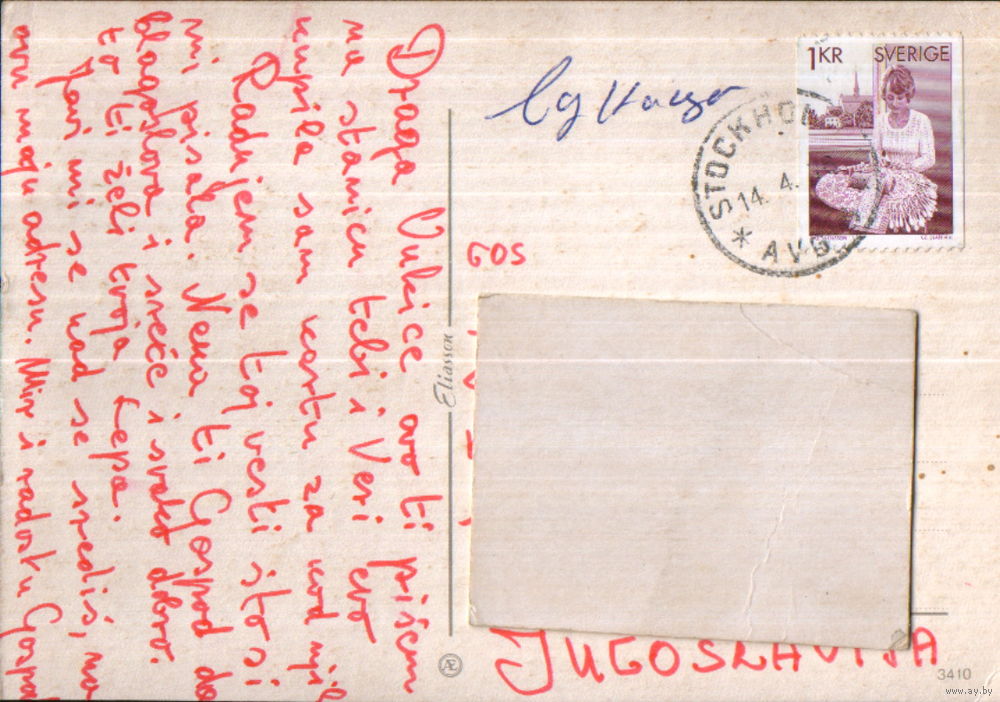 Draga Vukice ovo ti pišem
na stanicu tebi i Veri evo
kupila sam kartu za kod nji
Radujem se toj vesti što si
mi pisala. Neka ti Gospod da
blagoslova i sreće i svako dobro.
to ti želi tvoja Lepa.
Javi mi se kad se središ, na
ovu moju adresu. Mir i radost u Gospo
1KR SVERIGE
STOCKHOLM
14. 4.
* AVG
GOS
Eliasson
JUGOSLAVIJA
Æ
3410
www.ay.by